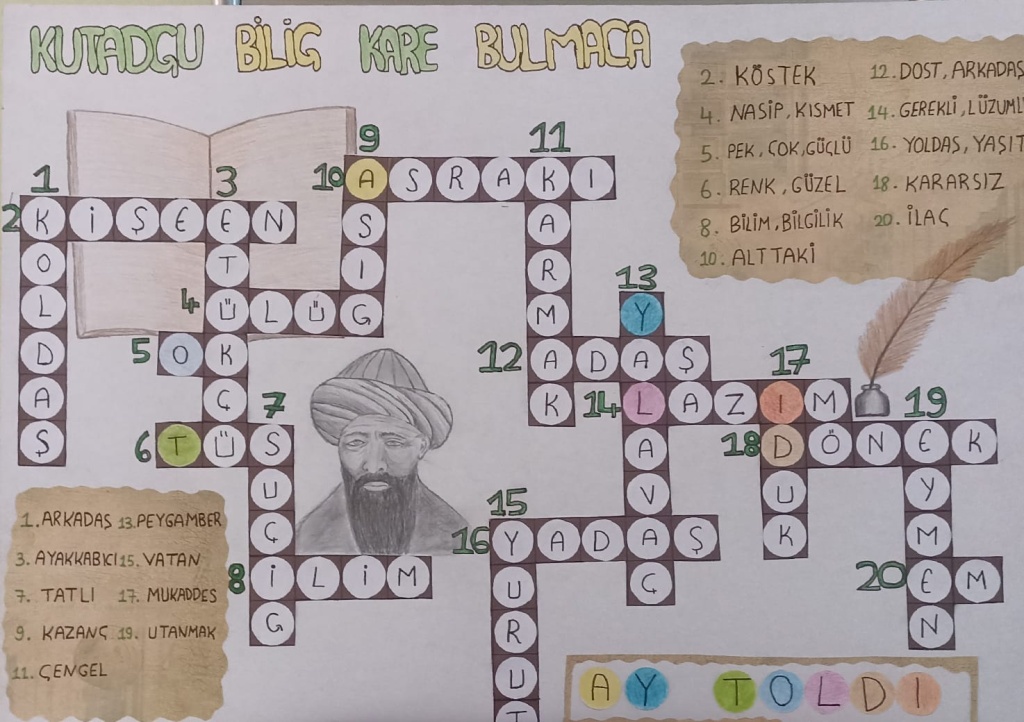 KUTADGU BİLİG KARE BULMACA
2. KÖSTEK
4. NASİP, KISMET
5. PEK, ÇOK, GÜÇLÜ
6. RENK, GÜZEL
8. BİLİM, BİLGİLİK
10. ALTTAKİ
12. DOST, ARKADAŞ
14. GEREKLİ, LÜZUMLU
16. YOLDAŞ, YAŞIT
18. KARARSIZ
20. İLAÇ
9 11
10 A S R A K I
1 3
S A
2 K İ Ş E E N
O T I R
13
L 4 Ü L Ü G M Y
D 5 O K 12 A D A Ş 17
A Ç 7 K 14 L A Z I M 19
Ş 6 T Ü S A 18 D Ö N E K
U V U Y
15
Ç 16 Y A D A Ş K M
8 İ L İ M U Ç 20 E M
G R N
U
T
1. ARKADAŞ
3. AYAKKABICI
7. TATLI
9. KAZANÇ
11. ÇENGEL
13. PEYGAMBER
15. VATAN
17. MUKADDES
19. UTANMAK
AY TOLDI